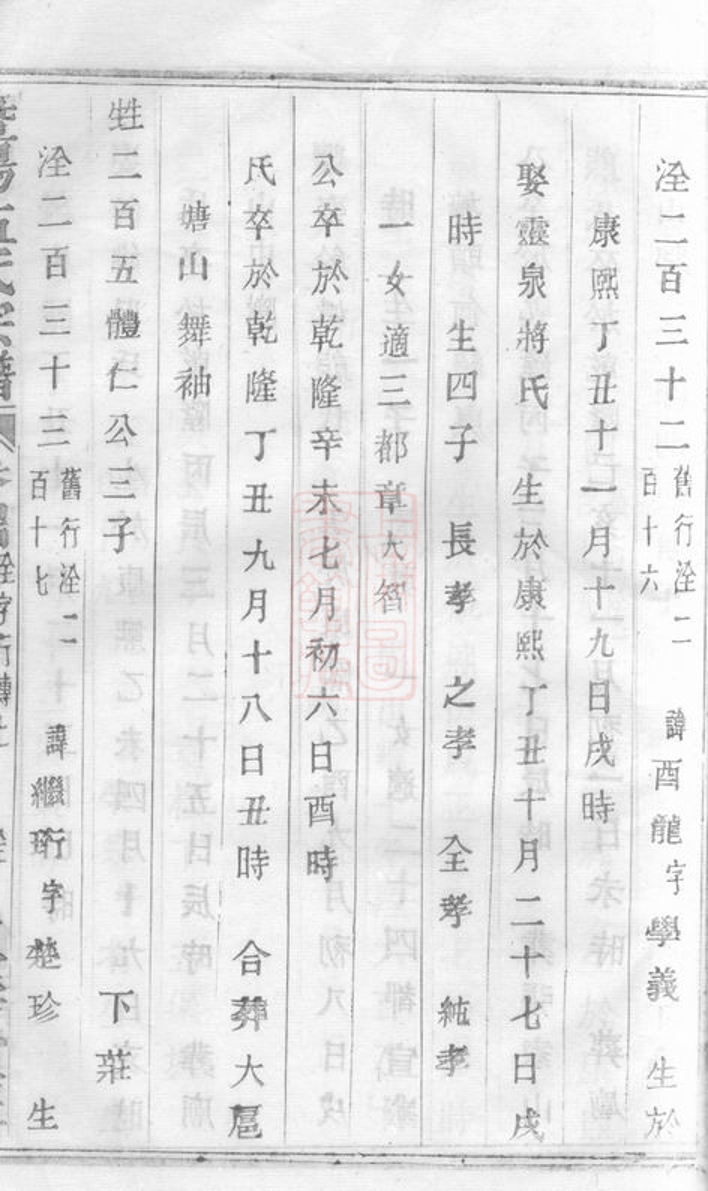 洤二百三十二 舊行洤二百十六 諱酉龍字學義 生於
康熙丁丑十一月十九日戌時
娶靈泉將氏 生於康熙丁丑十月二十七日戌
時 生四子 長孝 之孝 全孝 純孝
一女適三都章大智
公卒於乾隆辛未七月初六日酉時
氏卒於乾隆丁丑九月十八日丑時 合葬大扈
塘山舞袖
甡二百五體仁公三子 下莊
洤二百三十三 舊行洤二百十七 諱繼珩字楚珍 生